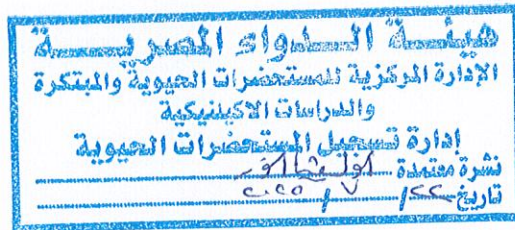 هيئة الدواء المصرية
الإدارة المركزية للمستحضرات الحيوية والمبتكرة
والدراسات الاكلينيكية
إدارة تسجيل المستحضرات الحيوية
نشرة معتمدة
تاريخ ٢٢/ / ٢٠٢٥